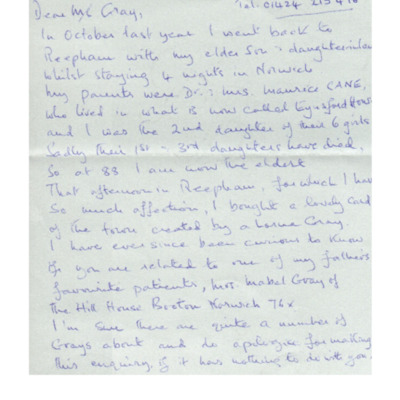 Dear Ms Gray, Tel: 01424 215416
In October last year I went back to
Reepham with my elder son & daughter in law
whilst staying 4 nights in Norwich
My parents were Dr. & Mrs. Maurice CANE,
who lived in what is now called Eynsford House
and I was the 2nd daughter of their 6 girls
Sadly their 1st & 3rd daughters have died,
So at 88 I am now the eldest
That afternoon in Reepham, for which I have
So much affection, I bought a lovely card
of the town created by a Gray.
I have ever since been curious to know
if you are related to one of my fathers
favourite patients, Mrs. Mabel Gray of
The Hill House Norwich
I'm sure there are quite a number of
Grays about and do apologise for making
this enquiry if it has nothing to do with you.